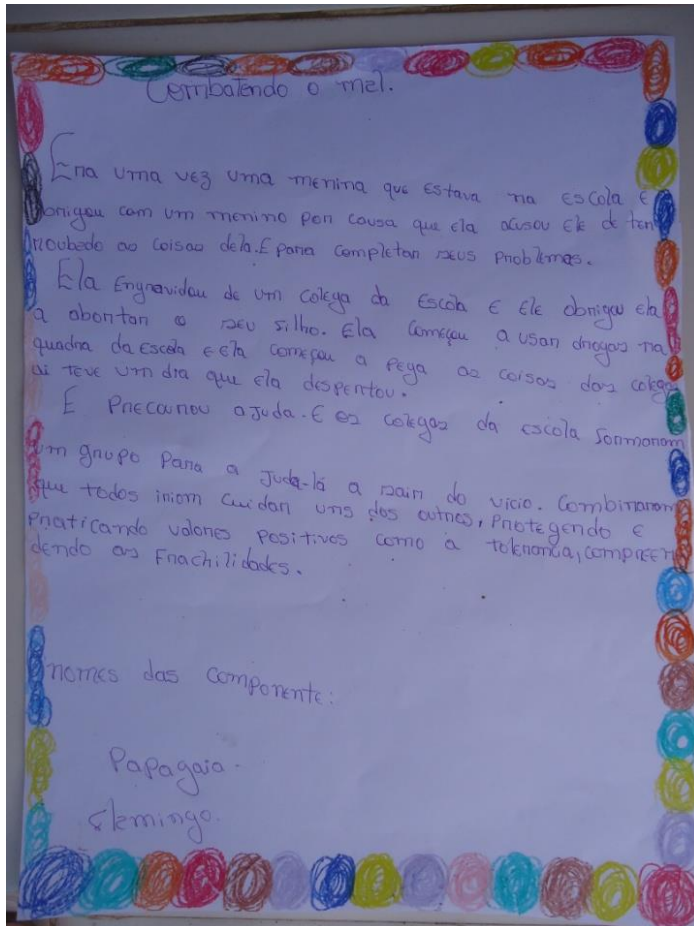 Combatendo o mal.
Era uma vez uma menina que estava na escola e
obrigou com um menino por causa que ela acusou ele de ter
roubado as coisas dela. E para completar seus problemas.
Ela Engravidou de um colega da Escola E Ele obrigou ela
a abortar o seu filho. Ela começou a usar drogas na
quadra da Escola E Ela começou a pega as coisas dos colegas
ai teve um dia que ela despertou.
E Precurou ajuda. E os colegas da escola formaram
um grupo para a juda-lá a sair do vicio. Combinaram
que todos iriam cuidar uns dos outros, protegendo e
praticando valores positivos como a tolerancia, compreen
dendo as frachilidades.
nomes das componente:
Papagaia.
flemingo.